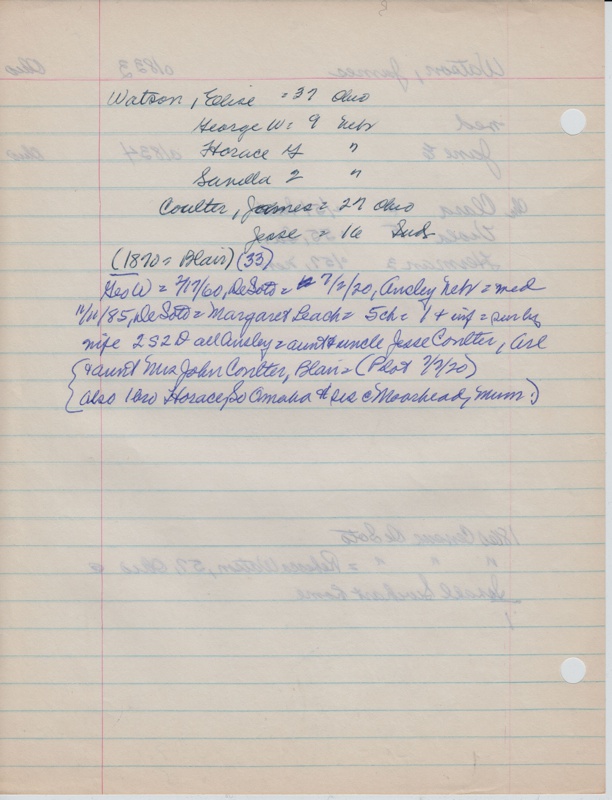 Watson, Elise = 37 Ohio
George W = 9 Nebr
Horace G "
Sunella 2 "
Coulter, James = 27 Ohio
Jesse = 16 Ind
(1870 = Blair) (33)
Geo W = 2/17/60, DeSoto = 7/2/20, Ansley Nebr = med
11/11/85, DeSoto = Margaret Beach = 5ch = 1 + inf = sur by
wife 2 S 2 D all Ansley = aunt & uncle Jesse Coulter,
& aunt Mrs John Coulter, Blair = (Pilot 7/7/20)
also bro Horace, So Omaha & sis c Moorhead, Minn.)